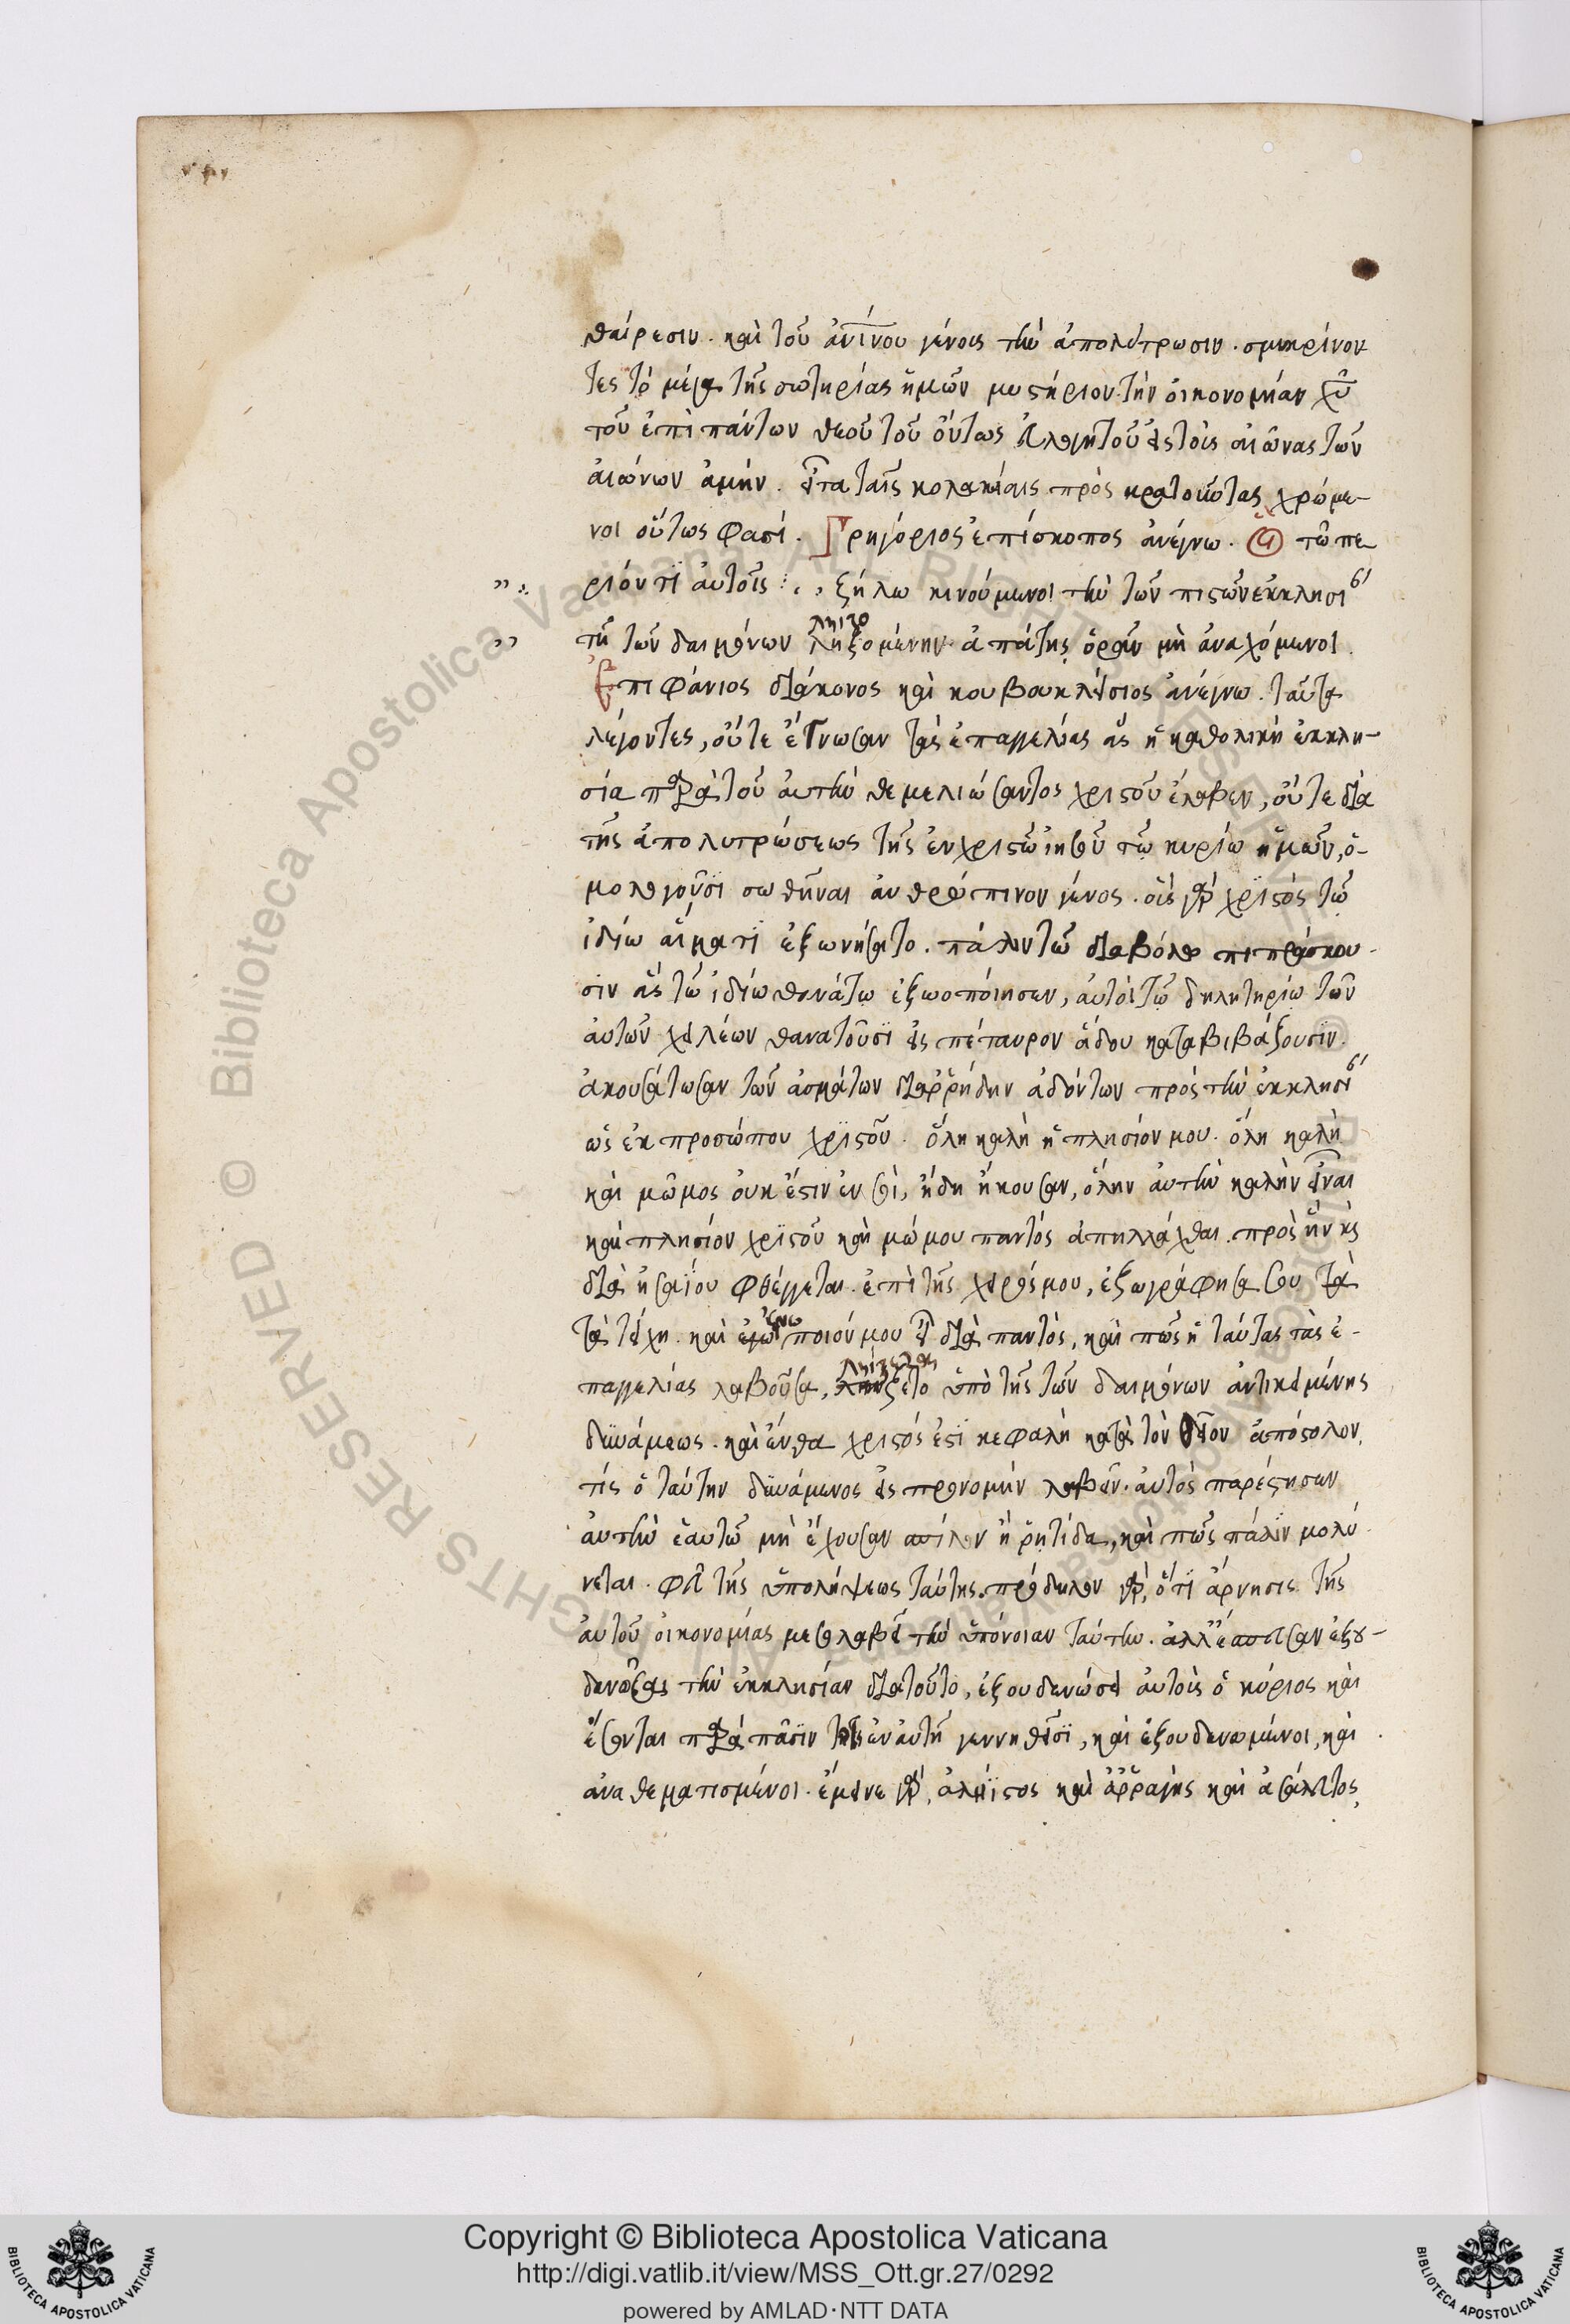 θαίρεσιν. καὶ τοῦ ἀνίνου γένους τὴν ἀπολύτρωσιν. σμικρύνον
τες τὸ μέγα τῆς σωτηρίας ἡμῶν μυστήριον τὴν οἰκονομίαν χῦ
τοῦ ἐπὶ πάντων θεοῦ τοῦ ὄντως εὐλογητοῦ εἰς τοὺς αἰῶνας τῶν
αἰώνων ἀμήν. εἶτα ταῖς κολακείαις πρὸς κρατοῦντας χρώμε-
νοι οὕτως φασί. Γρηγόριος ἐπίσκοπος ἀνέγνω. τῶ πε
ριόντι αὐτοῖς ζήλω κινούμενοι τὴν τῶν πιστῶν ἐκκλησί
τῆ τῶν δαιμόνων ληξομένην ἀπάτης ὁρᾶν μὴ ἀναχόμενοι.
ληιζο
Ἐπιφάνιος διάκονος καὶ κουβουκλείσιος ἀνέγνω. ταῦτα
λέγοντες, οὔτε ἔγνωσαν τὰς ἐπαγγελίας ἃς ἡ καθολικὴ ἐκκλη-
σία παρὰ τοῦ αὐτὴν θεμελιώσαντος χριστοῦ ἔλαβεν, οὔτε διὰ
τῆς ἀπολυτρώσεως τῆς ἐν χριστῶ ἰησοῦ τῶ κυρίω ἡμῶν, ὁ-
μολογοῦσι σωθῆναι ἀνθρώπινον γένος. οὓς γὰρ χριστὸς τῶ
ἰδίω αἵματι ἐξωνήσατο. πάλιν τῶ διαβόλω πιπράσκου-
σιν ἃς τῶ ἰδίω θανάτω ἐζωοποίησεν, αὐτοὶ τῶ δηλητηρίω τῶν
αὐτῶν χειλέων θανατοῦσι εἰς πέταυρον ἅδου καταβιβάζουσιν.
ἀκουσάτωσαν τῶν ἀσμάτων διαρρήδην ἀδόντων πρὸς τὴν ἐκκλησί
ὡς ἐκ προσώπου χριστοῦ. ὅλη καλὴ ἡ πλησίον μου. ὅλη καλὴ
καὶ μῶμος οὐκ ἔστιν ἐν σοὶ, ἤδη ἤκουσαν, ὅλην αὐτὴν καλὴν εἶναι
καὶ πλησίον χριστοῦ καὶ μώμου παντὸς ἀπηλλάχθαι. πρὸς ἣν κς
διὰ ἡσαΐου φθέγγεται. ἐπὶ τῆς χειρός μου, ἐζωγράφησα σου τὰ
τὰ τείχη. καὶ ποιόν μου εἶ διὰ παντὸς, καὶ πῶς ἡ ταύτας τὰς ἐ-
παγγελίας λαβοῦσα, ὑπὸ τῆς τῶν δαιμόνων ἀντικειμένης
δυνάμεως. καὶ ἔνθα χριστός ἐστι κεφαλὴ κατὰ τὸν θεῖον ἀπόστολον,
τίς ὁ ταύτην δυνάμενος εἰς προνομὴν λαβεῖν. αὐτὸς παρέστησεν
αὐτὴν ἑαυτῶ μὴ ἔχουσαν σπίλον ἢ ῥητίδα, καὶ πῶς πάλιν μολύ
νεται. φεῦ τῆς ὑπολήψεως ταύτης. πρόδηλον γὰρ, ὅτι ἄρνησις τῆς
αὐτοῦ οἰκονομίας μεσολαβεῖ τὴν ὑπόνοιαν ταύτην. ἀλλ' ἐξου-
δενῶσαι τὴν ἐκκλησίαν διατοῦτο, ἐξουδενώσει αὐτοὺς ὁ κύριος καὶ
ἔσονται παρὰ πᾶσιν τοῖς ἐν αὐτῆ γεννηθεῖσι, καὶ ἐξουδενωμένοι, καὶ
ἀναθεματισμένοι. ἔμεινε γὰρ, ἀλήϊστος καὶ ἀρραγὴς καὶ ἀσάλευτος,
Copyright © Biblioteca Apostolica Vaticana
http://digi.vatlib.it/view/MSS_Ott.gr.27/0292
powered by AMLAD·NTT DATA
BIBLIOTECA APOSTOLICA VATICANA
BIBLIOTECA APOSTOLICA VATICANA